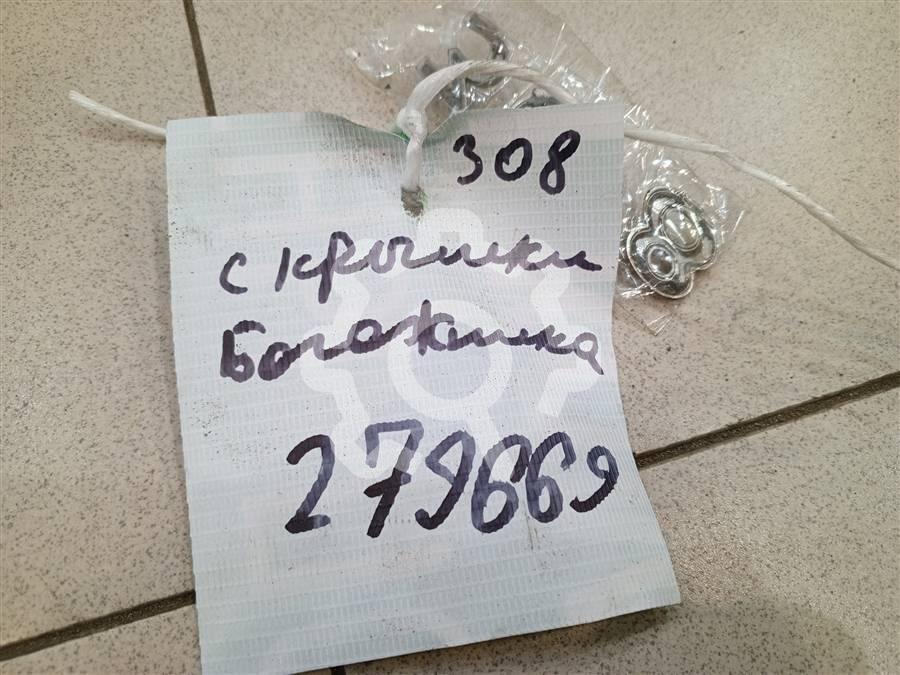 308
с крышки
Багажника
279669